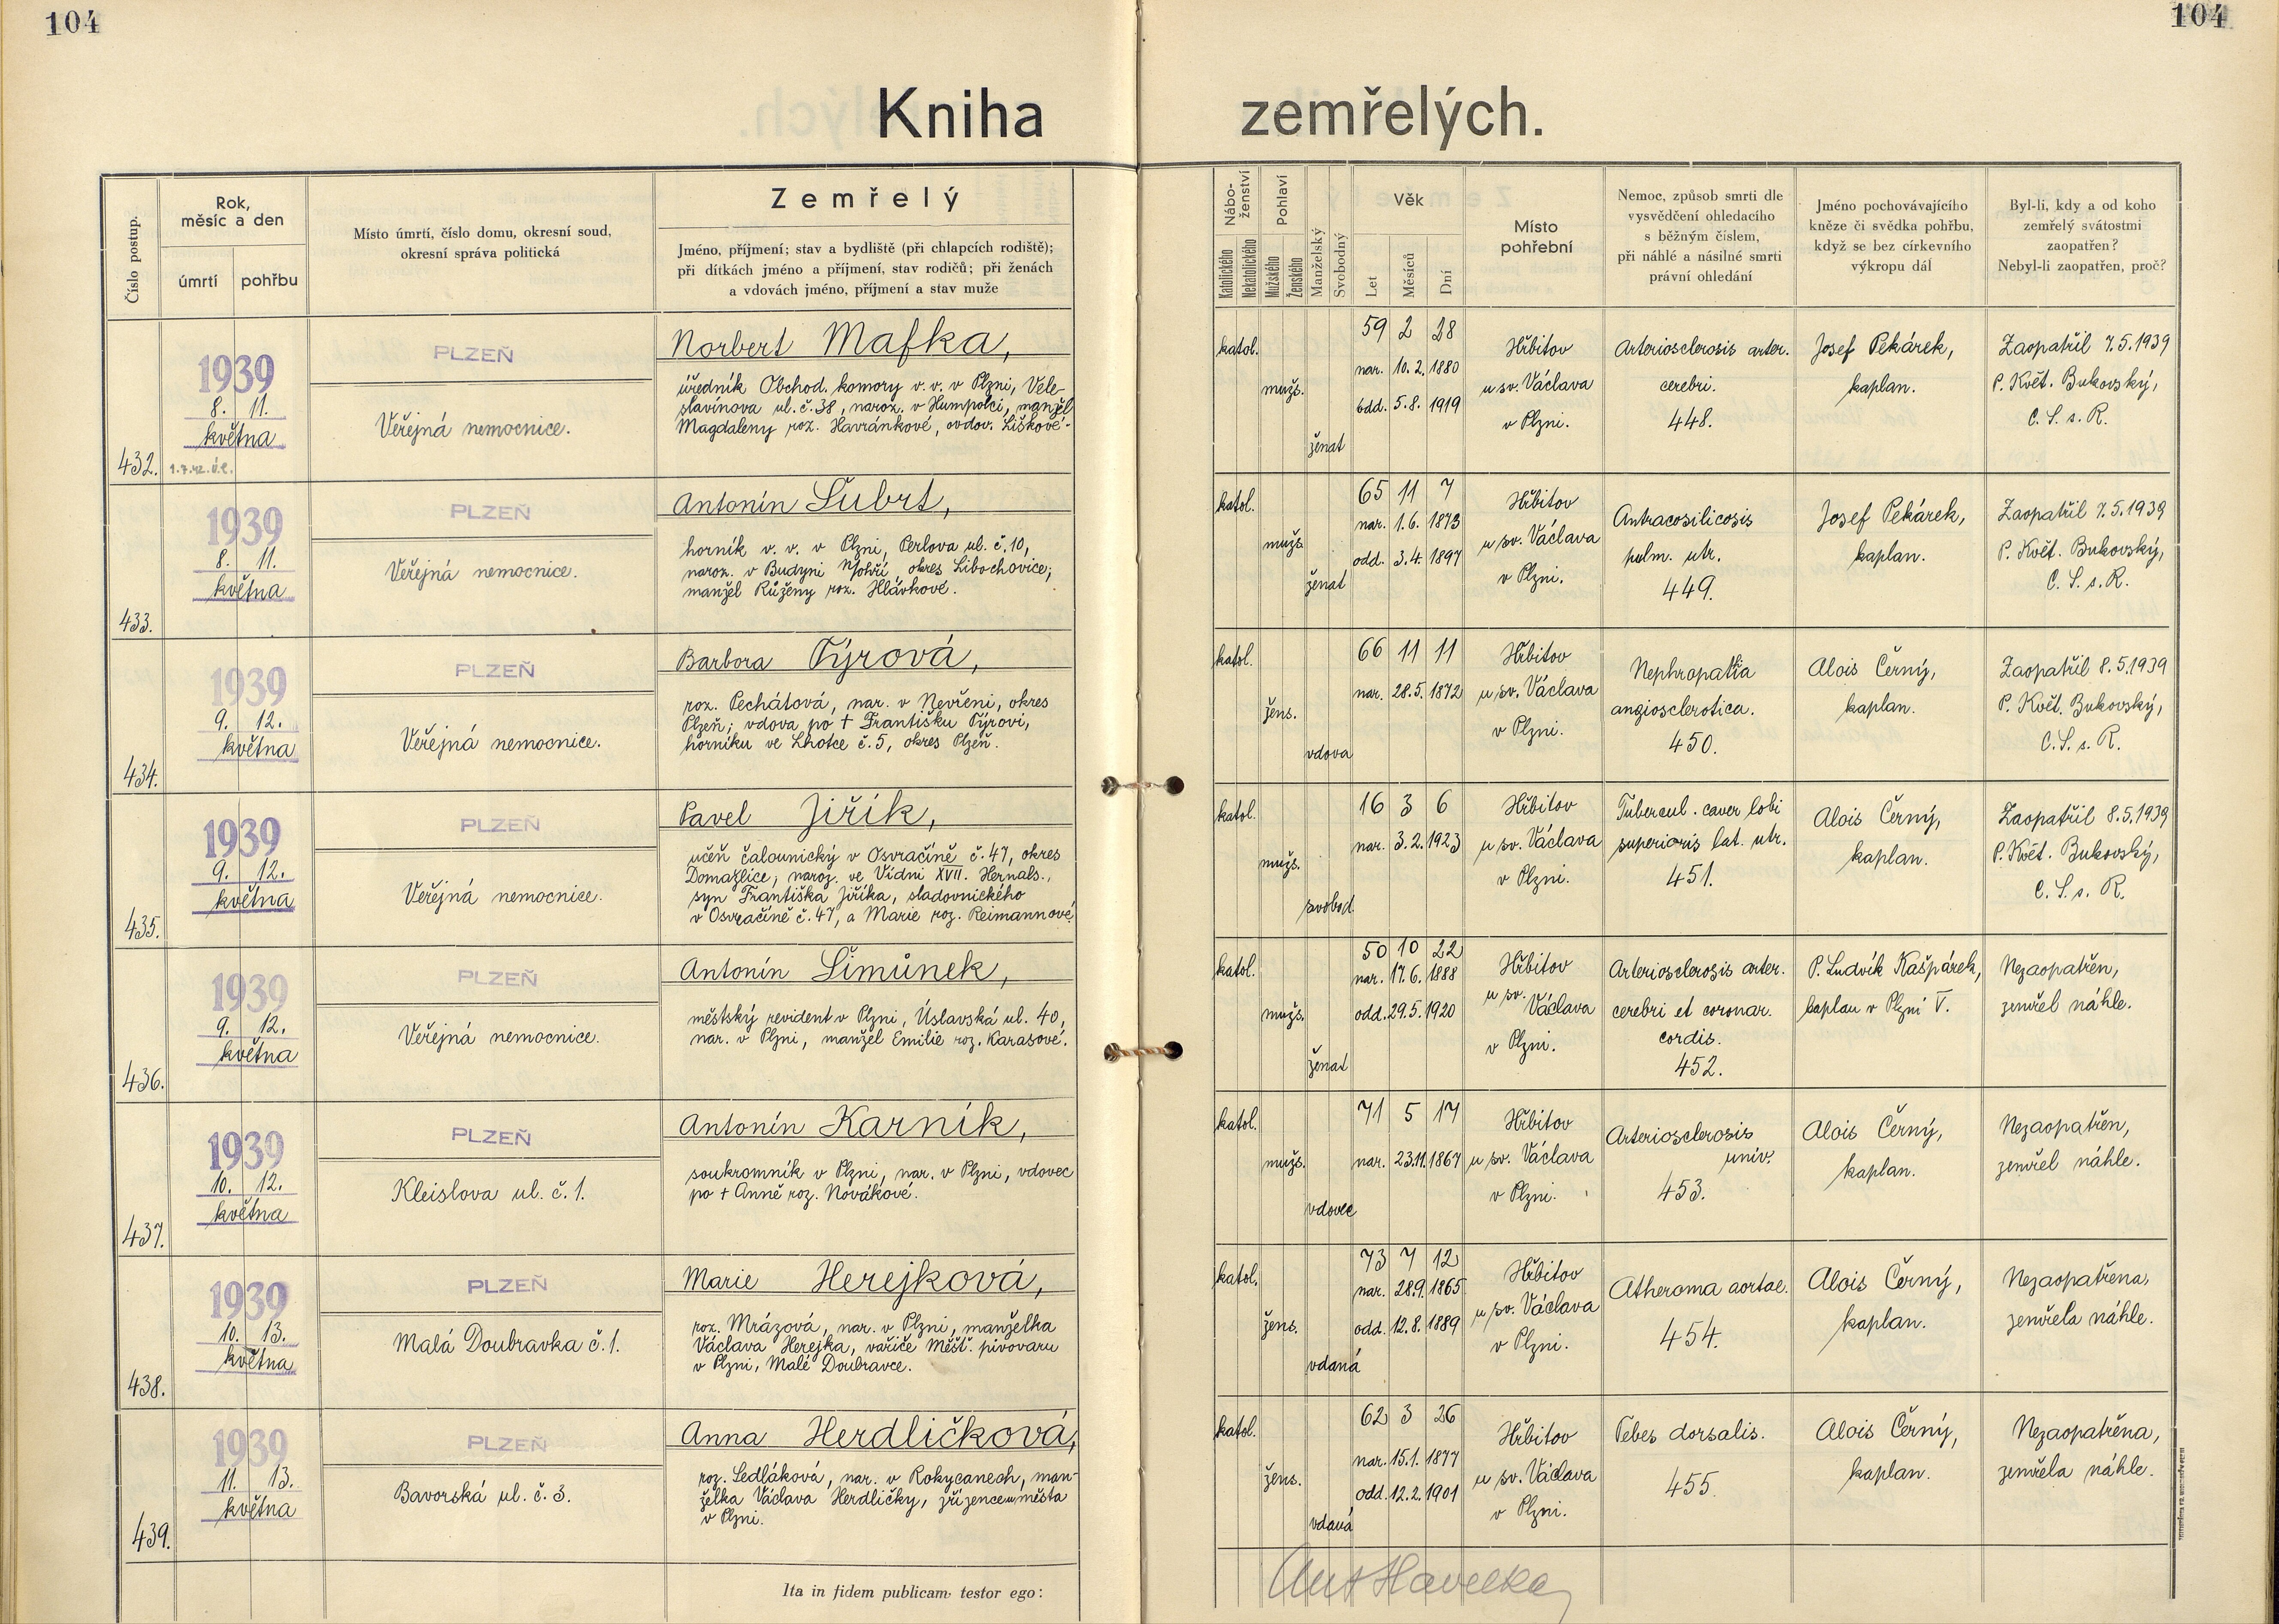 104
104
Kniha zemřelých.
Číslo postup.
Rok,
měsíc a den
úmrtí
pohřbu
Místo úmrtí, číslo domu, okresní soud,
okresní správa politická
Zemřelý
Jméno, příjmení; stav a bydliště (při chlapcích rodiště);
při dítkách jméno a příjmení, stav rodičů; při ženách
a vdovách jméno, příjmení a stav muže
Nábo-
ženství
Katolického
Nekatolického
Pohlaví
Mužského
Ženského
Manželský
Svobodný
Věk
Let
Měsíců
Dní
Místo
pohřební
Nemoc, způsob smrti dle
vysvědčení ohledacího
s běžným číslem,
při náhlé a násilné smrti
právní ohledání
Jméno pochovávajícího
kněze či svědka pohřbu,
když se bez církevního
výkropu dál
Byl-li, kdy a od koho
zemřelý svátostmi
zaopatřen?
Nebyl-li zaopatřen, proč?
432.
1939
8. 11.
května
1.7.42. ú.l.
PLZEŇ
Veřejná nemocnice.
Norbert Mafka,
úředník Obchod. komory v. v. v Plzni, Vele-
slavínova ul. č. 38, naroz. v Humpolci, manžel
Magdaleny roz. Havránkové, ovdov. Liškové.
katol.
mužs.
ženat
59 2 28
nar. 10. 2. 1880
odd. 5. 8. 1919
Hřbitov
u sv. Václava
v Plzni.
Arteriosclerosis arter.
cerebri.
448.
Josef Pekárek,
kaplan.
Zaopatřil 7.5.1939
P. Květ. Bukovský,
C. S. s. R.
433.
1939
8. 11.
května
PLZEŇ
Veřejná nemocnice.
Antonín Šubrt,
horník v. v. v Plzni, Perlova ul. č. 10,
naroz. v Budyni n/Ohří okres Libochovice;
manžel Růženy roz. Hlávkové.
katol.
mužs.
ženat
65 11 7
nar. 1. 6. 1873
odd. 3. 4. 1897
Hřbitov
u sv. Václava
v Plzni.
Antracosilicosis
pulm. utr.
449.
Josef Pekárek,
kaplan.
Zaopatřil 7.5.1939
P. Květ. Bukovský,
C. S. s. R.
434.
1939
9. 12.
května
PLZEŇ
Veřejná nemocnice.
Barbora Týrová,
roz. Pechátová, nar. v Nevřeni, okres
Plzeň; vdova po † Františku Týrovi,
horníku ve Lhotce č. 5, okres Plzeň.
katol.
žens.
vdova
66 11 11
nar. 28. 5. 1872
Hřbitov
u sv. Václava
v Plzni.
Nephropathia
angiosclerotica.
450.
Alois Černý,
kaplan.
Zaopatřil 8.5.1939
P. Květ. Bukovský,
C. S. s. R.
435.
1939
9. 12.
května
PLZEŇ
Veřejná nemocnice.
Pavel Jiřík,
učeň čalounický v Osvračíně č. 47, okres
Domažlice, naroz. ve Vídni XVII. Hernals.,
syn Františka Jiříka, sladovnického
v Osvračíně č. 47, a Marie roz. Reimannové.
katol.
mužs.
svobod.
16 3 6
nar. 3. 2. 1923
Hřbitov
u sv. Václava
v Plzni.
Tubercul. caver lobi
superioris lat. utr.
451.
Alois Černý,
kaplan.
Zaopatřil 8.5.1939
P. Květ. Bukovský,
C. S. s. R.
436.
1939
9. 12.
května
PLZEŇ
Veřejná nemocnice.
Antonín Šimůnek,
městský revident v Plzni, Úslavská ul. 40,
nar. v Plzni, manžel Emilie roz. Karasové.
katol.
mužs.
ženat
50 10 22
nar. 17. 6. 1888
odd. 29. 5. 1920
Hřbitov
u sv.
Václava
v Plzni.
Arteriosclerosis arter.
cerebri et coronar.
cordis.
452.
P. Ludvík Kašpárek,
kaplan v Plzni V.
Nezaopatřen,
zemřel náhle.
437.
1939
10. 12.
května
PLZEŇ
Kleislova ul. č. 1.
Antonín Karník,
soukromník v Plzni, nar. v Plzni, vdovec
po † Anně roz. Novákové.
katol.
mužs.
vdovec
71 5 17
nar. 23. 11. 1867
Hřbitov
u sv. Václava
v Plzni.
Arteriosclerosis
univ.
453.
Alois Černý,
kaplan.
Nezaopatřen,
zemřel náhle.
438.
1939
10. 13.
května
PLZEŇ
Malá Doubravka č. 1.
Marie Herejková,
roz. Mrázová, nar. v Plzni, manželka
Václava Herejka, vařiče Měšť. pivovaru
v Plzni, Malé Doubravce.
katol.
žens.
vdaná
73 7 12
nar. 28. 9. 1865
odd. 12. 8. 1889
Hřbitov
u sv. Václava
v Plzni.
Atheroma aortae.
454.
Alois Černý,
kaplan.
Nezaopatřena,
zemřela náhle.
439.
1939
11. 13.
května
PLZEŇ
Bavorská ul. č. 3.
Anna Herdličková,
roz. Sedláková, nar. v Rokycanech, man-
želka Václava Herdličky, zřízence města
v Plzni.
katol.
žens.
vdaná
62 3 26
nar. 15. 1. 1877
odd. 12. 2. 1901
Hřbitov
u sv. Václava
v Plzni.
Tabes dorsalis.
455.
Alois Černý,
kaplan.
Nezaopatřena,
zemřela náhle.
Ita in fidem publicam testor ego:
Ant Havelka